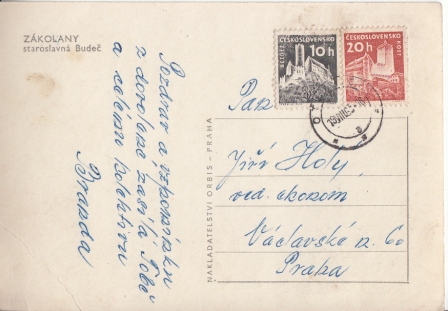 ZÁKOLANY
staroslavná Budeč
Pozdrav a vzpomínku
z dovolené zasílá Tobě
a celému kolektivu
Branda
NAKLADATELSTVÍ ORBIS – PRAHA
BEZDĚZ
ČESKOSLOVENSKO
10 h
ČESKOSLOVENSKO
KOST
20 h
Pan
Jiří Holy
ved. ekonom
Václavské n. 60
Praha